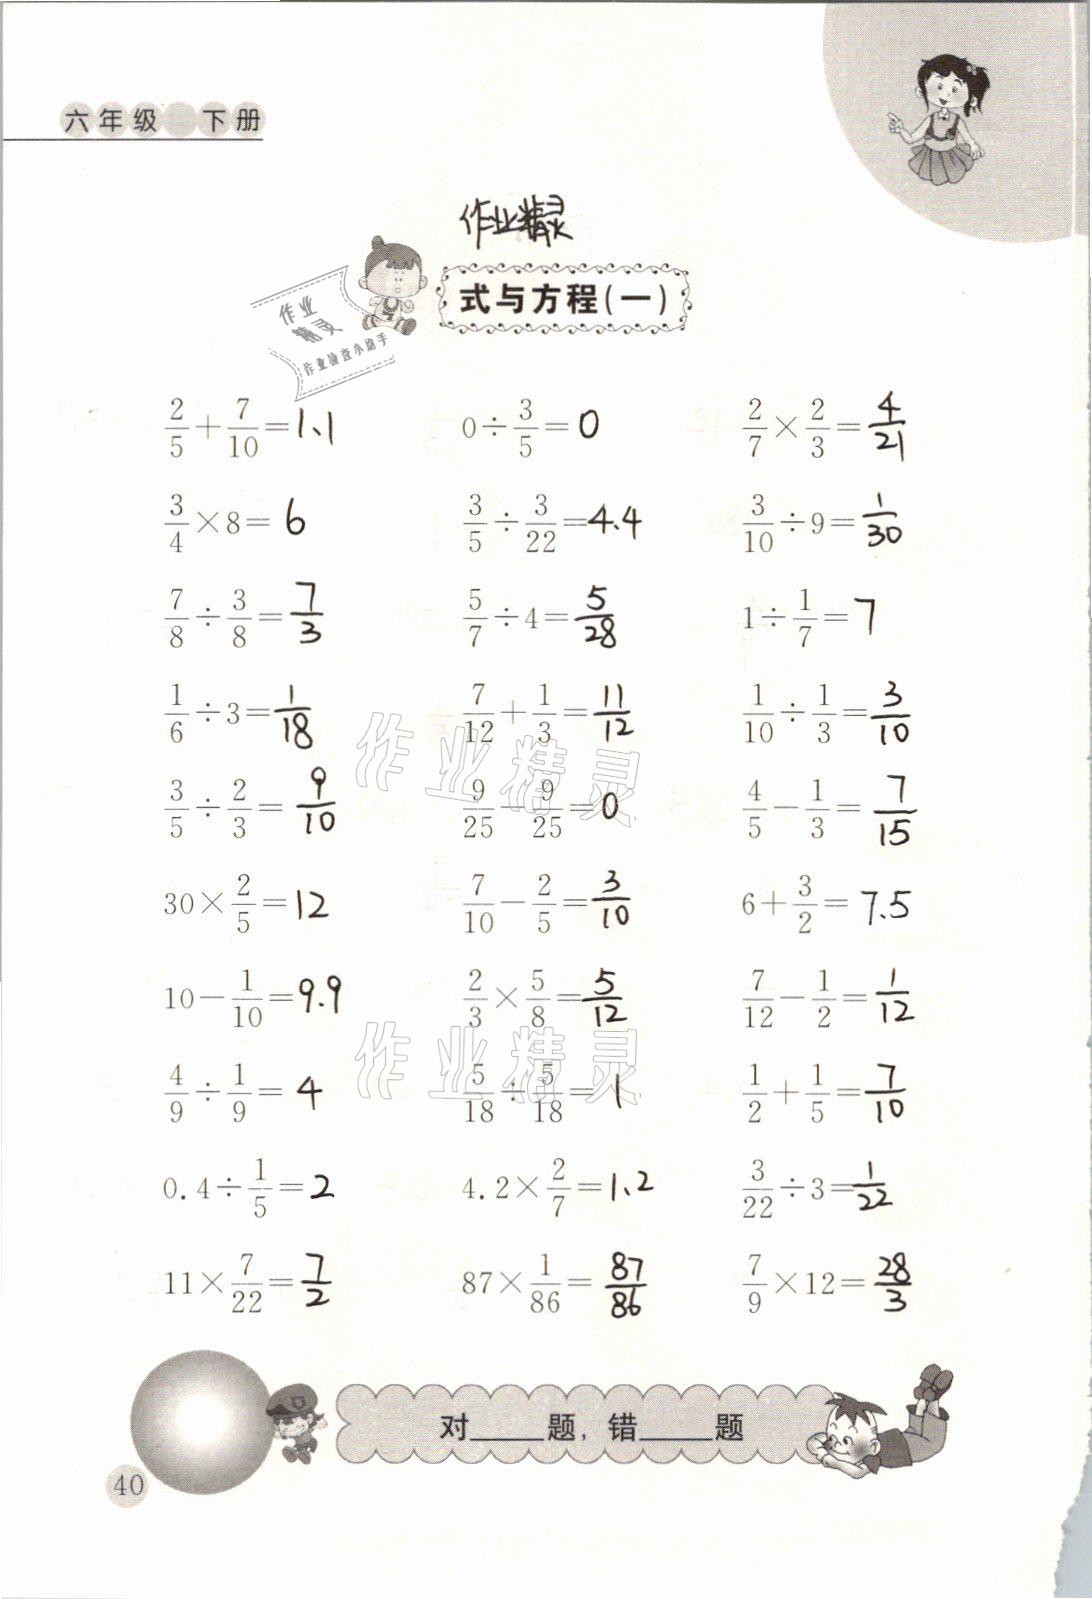 六年级 下册
作业精灵
式与方程(一)
作业
精灵
作业检查小助手
2/5+7/10=1.1 0÷3/5=0 2/7×2/3=4/21
3/4×8=6 3/5÷3/22=4.4 3/10÷9=1/30
7/8÷3/8=7/3 5/7÷4=5/28 1÷1/7=7
1/6÷3=1/18 7/12+1/3=11/12 1/10÷1/3=3/10
3/5÷2/3=9/10 9/25-9/25=0 4/5-1/3=7/15
作业精灵
30×2/5=12 7/10-2/5=3/10 6+3/2=7.5
10-1/10=9.9 2/3×5/8=5/12 7/12-1/2=1/12
作业精灵
4/9÷1/9=4 5/18÷5/18=1 1/2+1/5=7/10
0.4÷1/5=2 4.2×2/7=1.2 3/22÷3=1/22
11×7/22=7/2 87×1/86=87/86 7/9×12=28/3
对____题,错____题
40